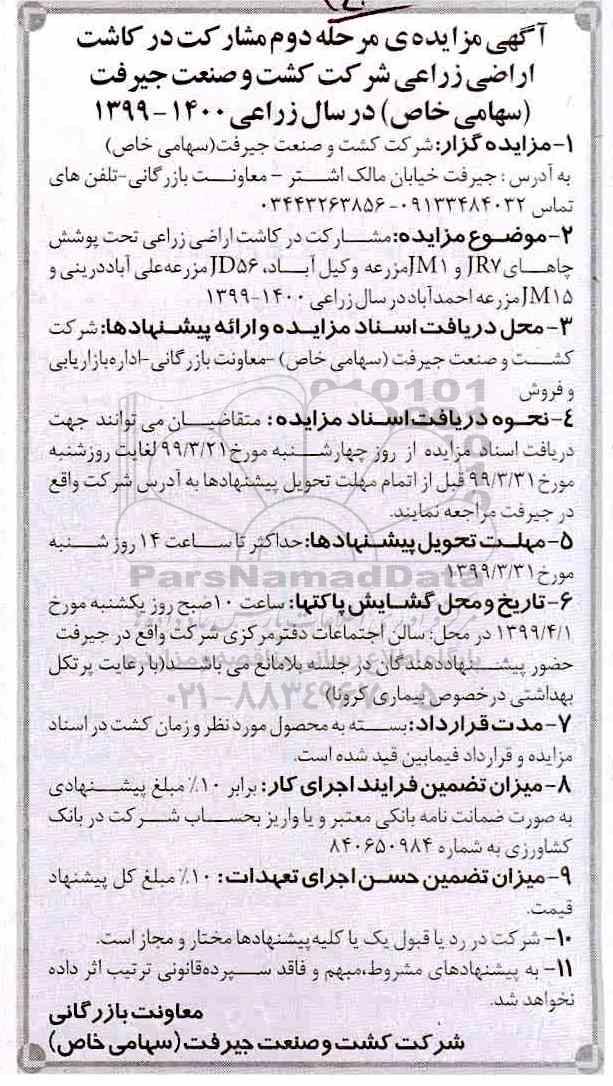 آگهی مزایده‌ی مرحله دوم مشارکت در کاشت
اراضی زراعی شرکت کشت و صنعت جیرفت
(سهامی خاص) در سال زراعی ۱۴۰۰-۱۳۹۹
۱-مزایده گزار: شرکت کشت و صنعت جیرفت(سهامی خاص)
به آدرس: جیرفت خیابان مالک اشتر - معاونت بازرگانی-تلفن های
تماس ۰۹۱۳۳۴۸۴۰۳۲-۰۳۴۴۳۲۶۳۸۵۶
۲-موضوع مزایده: مشارکت در کاشت اراضی زراعی تحت پوشش
چاهای JR۷ و JM۱ مزرعه وکیل آباد، JD۵۶ مزرعه‌علی آباددرینی و
JM۱۵ مزرعه احمدآباد در سال زراعی ۱۴۰۰-۱۳۹۹
۳- محل دریافت اسناد مزایده و ارائه پیشنهادها: شرکت
کشت و صنعت جیرفت (سهامی خاص) -معاونت بازرگانی-اداره‌بازاریابی
و فروش
٤-نحوه دریافت اسناد مزایده: متقاضیان می توانند جهت
دریافت اسناد مزایده از روز چهارشنبه مورخ ۹۹/۳/۲۱ لغایت روزشنبه
مورخ ۹۹/۳/۳۱ قبل از اتمام مهلت تحویل پیشنهادها به آدرس شرکت واقع
در جیرفت مراجعه نمایند.
۵-مهلت تحویل پیشنهادها: حداکثر تا ساعت ۱۴ روز شنبه
مورخ ۱۳۹۹/۳/۳۱
۶-تاریخ و محل گشایش پاکتها: ساعت ۱۰ صبح روز یکشنبه مورخ
۱۳۹۹/۴/۱ در محل: سالن اجتماعات دفترمرکزی شرکت واقع در جیرفت
حضور پیشنهاددهندگان در جلسه بلامانع می باشد(با رعایت پرتکل
بهداشتی درخصوص بیماری کرونا)
۷-مدت قرارداد: بسته به محصول مورد نظر و زمان کشت در اسناد
مزایده و قرارداد فیمابین قید شده است.
۸-میزان تضمین فرایند اجرای کار: برابر ۱۰٪ مبلغ پیشنهادی
به صورت ضمانت نامه بانکی معتبر و یا واریز بحساب شرکت در بانک
کشاورزی به شماره ۸۴۰۶۵۰۹۸۴
۹-میزان تضمین حسن اجرای تعهدات: ۱۰٪ مبلغ کل پیشنهاد
قیمت.
۱۰- شرکت در رد یا قبول یک یا کلیه‌پیشنهادها مختار و مجاز است.
۱۱- به پیشنهادهای مشروط،مبهم و فاقد سپرده‌قانونی ترتیب اثر داده
نخواهد شد.
معاونت بازرگانی
شرکت کشت و صنعت جیرفت (سهامی خاص)
ParsNamadData